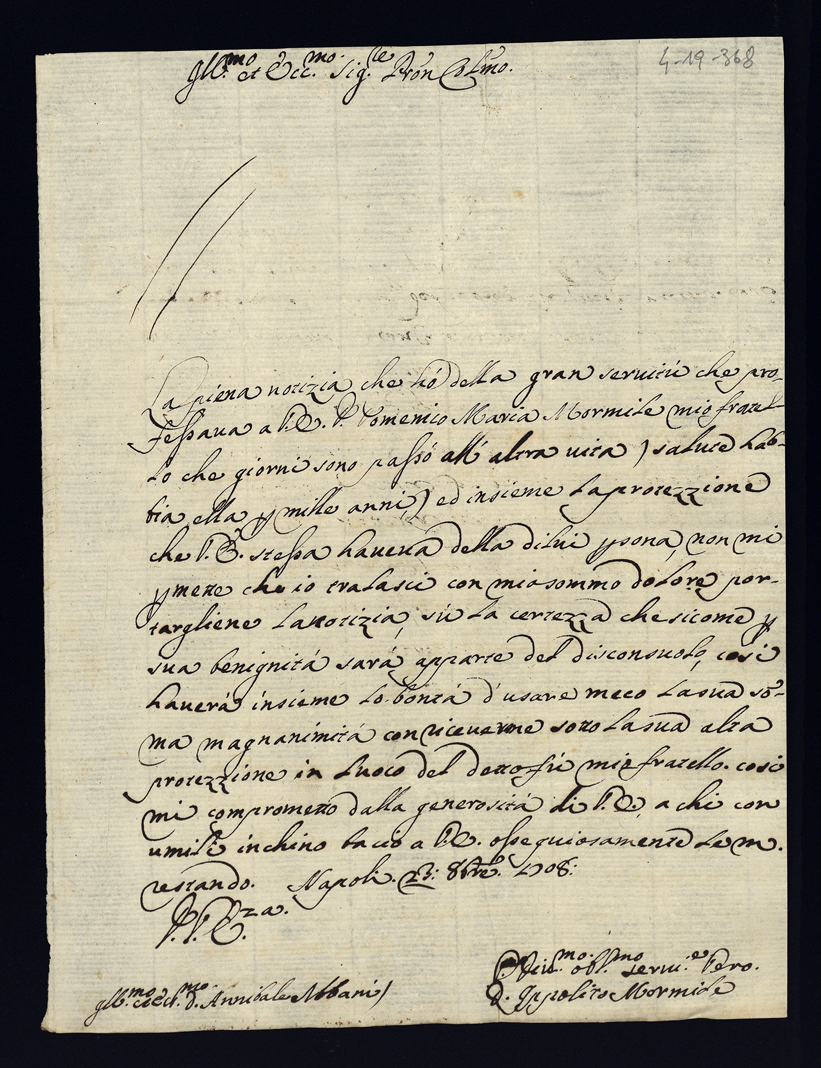 4-19-368
Ill.mo et Ecc.mo Sig.re Pron Col.mo
La piena notizia che hó della gran servitù che pro-
fessava a V.E. D. Domenico Maria Mormile mio fratel-
lo che giorni sono passó all' altra vita ) salute hab-
bia ella p mille anni,) ed insieme la protezzione
che V.E. stessa haveva della di lui psona, non mi
pmette che io tralasci con mio sommo dolore por-
targliene la notizia, sù la certezza che sicome p
sua benignitá sará apparte del disconsuolo, cosi
haverá insieme la bontá d'usare meco la sua so-
ma magnanimitá con riceverme sotto la sua alta
protezzione in luoco del detto fú mio fratello. cosi
mi comprometto dalla generositá di V.E., a chi con
umile inchino bacio a V.E. ossequiosamente le m.
restando. Napoli 23: 8bre. 1708:
D.V.E.za.
mo. obl.mo serv.e vero.
D. Ippolito Mormile
Ill.mo et Ecc.mo D. Annibale Albani)